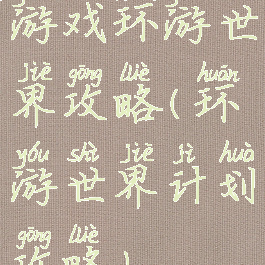 游戏环游世
jiè gōng lüè huán
界攻略(环
yóu shì jiè jì huà
游世界计划
gōng lüè
攻略)